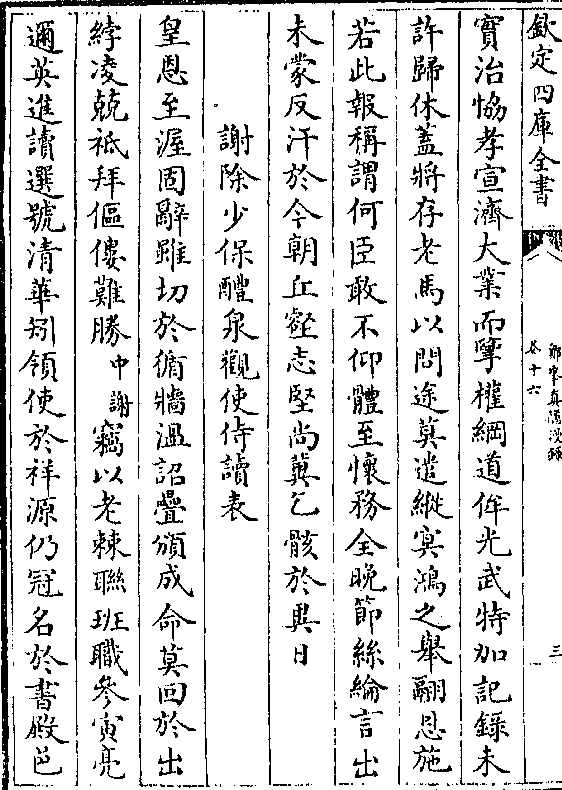 欽定四庫全書
鄮峯真隱漫録
卷十六
三
實治恊孝宣濟大業而擥權綱道侔光武特加記錄未
許歸休蓋將存老馬以問途莫遣縱㝠鴻之舉翮恩施
若此報稱謂何臣敢不仰體至懷務全晚節絲綸言出
未蒙反汗於今朝丘壑志堅尚冀乞骸於異日
謝除少保醴泉觀使侍讀表
皇恩至渥固辭雖切於循牆溫詔疊頒成命莫回於出
綍凌兢祇拜傴僂難勝中謝竊以老棘聯班職參寅亮
邇英進讀選號清華矧領使於祥源仍冠名於書殿邑